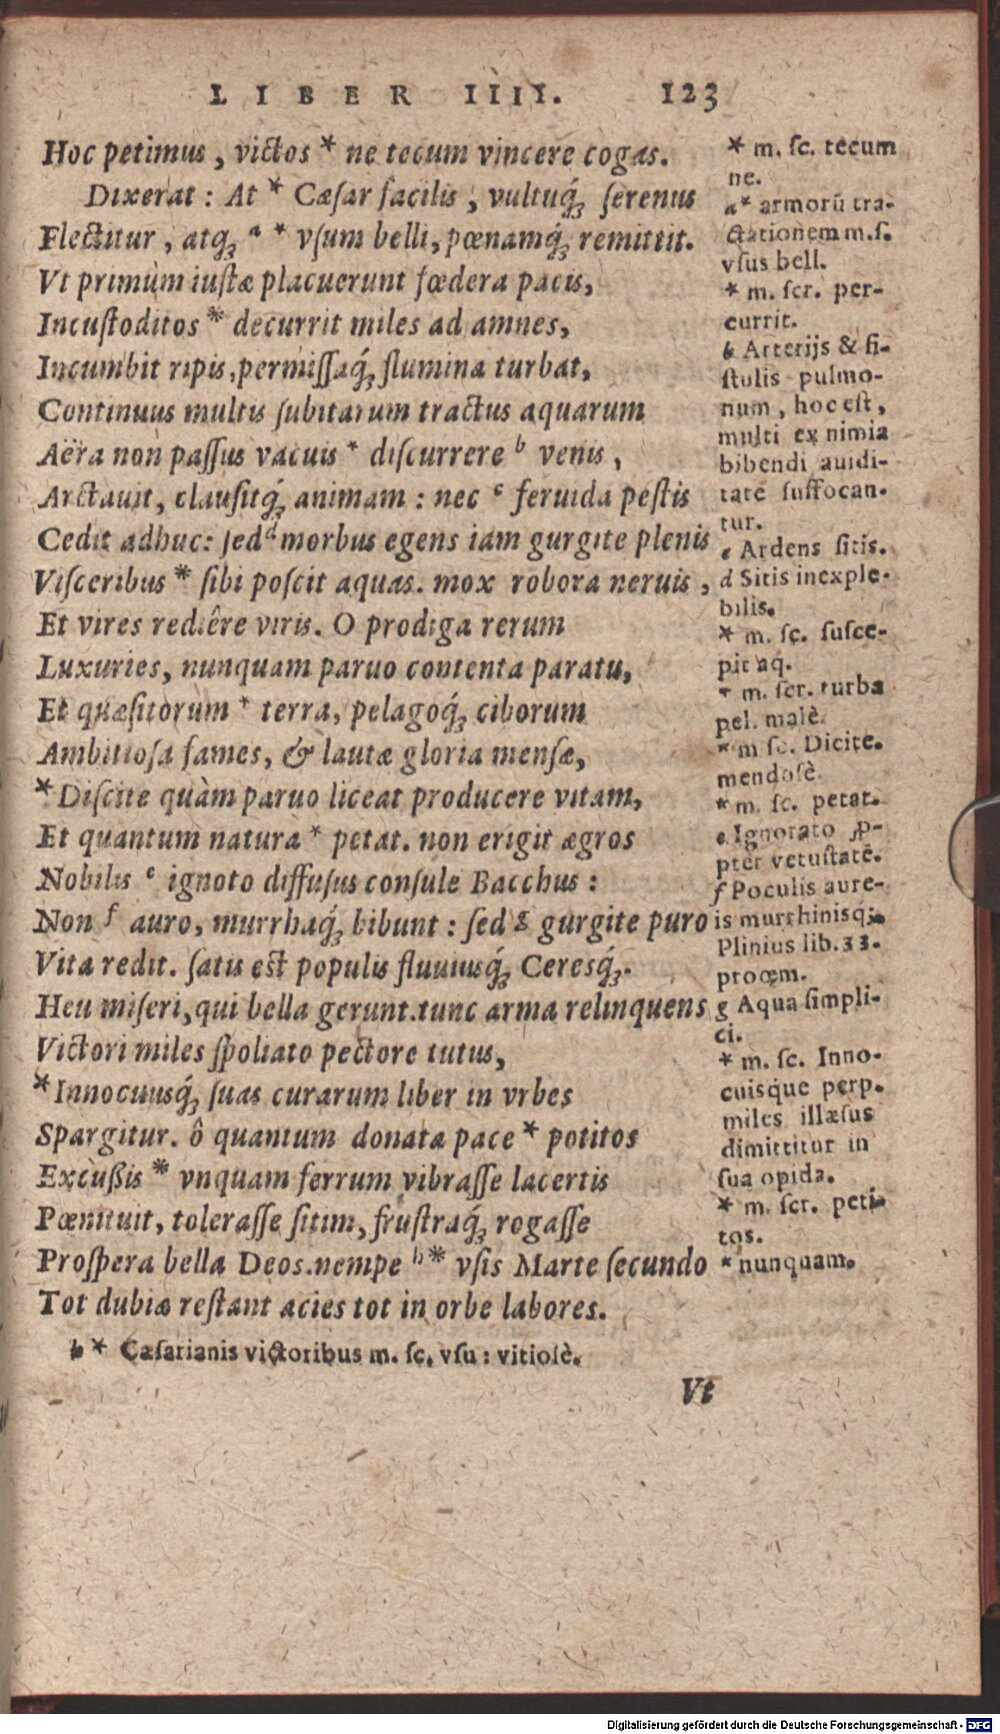 LIBER IIII. 123
Hoc petimus, victos * ne tecum vincere cogas.
Dixerat: At * Cæsar facilis, vultuq́ꝫ serenus
Flectitur, atqꝫ a * vsum belli, pœnamq́ꝫ remittit.
Vt primùm iustæ placuerunt fœdera pacis,
Incustoditos * decurrit miles ad amnes,
Incumbit ripis, permissaq́ꝫ flumina turbat,
Continuus multis subitarum tractus aquarum
Aëra non passus vacuis * discurrere b venis,
Arctauit, clausitq́ꝫ animam: nec c feruida pestis
Cedit adhuc: sed d morbus egens iam gurgite plenis
Visceribus * sibi poscit aquas. mox robora neruis,
Et vires rediêre viris. O prodiga rerum
Luxuries, nunquam paruo contenta paratu,
Et quæsitorum * terra, pelagoq́ꝫ ciborum
Ambitiosa fames, & lautæ gloria mensæ,
* Discite quàm paruo liceat producere vitam,
Et quantum natura * petat. non erigit ægros
Nobilis e ignoto diffusus consule Bacchus:
Non f auro, murrhaq́ꝫ bibunt: sed g gurgite puro
Vita redit. satis est populis fluuiusq́ꝫ Ceresq́ꝫ.
Heu miseri, qui bella gerunt. tunc arma relinquens
Victori miles spoliato pectore tutus,
* Innocuusq́ꝫ suas curarum liber in vrbes
Spargitur. ô quantum donata pace * potitos
Excußis * vnquam ferrum vibrasse lacertis
Pœnituit, tolerasse sitim, frustraq́ꝫ rogasse
Prospera bella Deos. nempe h * vsis Marte secundo
Tot dubiæ restant acies tot in orbe labores.
h * Cæsarianis victoribus m. sc. vsu: vitiosè.
Vt
* m. sc. tecum
ne.
a * armorū tra-
ctationem m. s.
vsus bell.
* m. scr. per-
currit.
b Arterijs & fi-
stulis pulmo-
num, hoc est,
multi ex nimia
bibendi auidi-
tate suffocan-
tur.
c Ardens sitis.
d Sitis inexple-
bilis.
* m. sc. susce-
pit aq.
* m. scr. turba
pel. malè.
* m sc. Dicite.
mendosè.
* m. sc. petat.
e Ignorato ꝓ-
pter vetustatē.
f Poculis aure-
is murrhinisqꝫ.
Plinius lib. 33.
proœm.
g Aqua simpli-
ci.
* m. sc. Inno-
cuisque perp.
miles illæsus
dimittitur in
sua opida.
* m. scr. peti-
tos.
* nunquam.
Digitalisierung gefördert durch die Deutsche Forschungsgemeinschaft - DFG